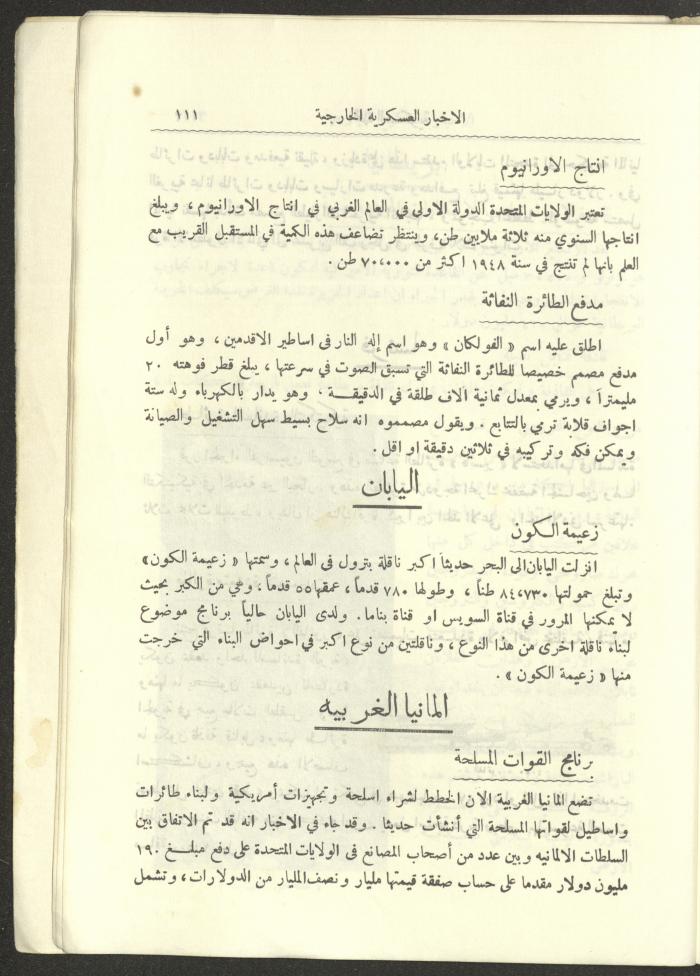 الاخبار العسكرية الخارجية ١١١
انتاج الاورانيوم
تعتبر الولايات المتحدة الدولة الاولى في العالم الغربي في انتاج الاورانيوم ، ويبلغ
انتاجها السنوي منه ثلاثة ملايين طن، وينتظر تضاعف هذه الكمية في المستقبل القريب مع
العلم بانها لم تنتج في سنة ١٩٤٨ اكثر من ٧٠،٠٠٠ طن .
مدفع الطائرة النفاثة
اطلق عليه اسم « الفولكان » وهو اسم إله النار فى اساطير الاقدمين ، وهو أول
مدفع مصمم خصيصا للطائرة النفاثة التي تسبق الصوت في سرعتها ، يبلغ قطر فوهته ٢٠
مليمتراً ، ويرمي بمعدل ثمانية آلاف طلقة في الدقيقة . وهو يدار بالكهرباء وله ستة
اجواف قلابة ترمي بالتتابع . ويقول مصمموه انه سلاح بسيط سهل التشغيل والصيانة
ويمكن فكه وتركيبه في ثلاثين دقيقة او اقل .
اليابان
زعيمة الكون
انزلت اليابان الى البحر حديثاً اكبر ناقلة بترول في العالم ، وسمتها « زعيمة الكون »
وتبلغ حمولتها ٨٤،٧٣٠ طناً ، وطولها ٧٨٠ قدماً ، عمقها ٥٥ قدماً ، وهي من الكبر بحيث
لا يمكنها المرور في قناة السويس او قناة بناما . ولدى اليابان حالياً برنامج موضوع
لبناء ناقلة اخرى من هذا النوع ، وناقلتين من نوع اكبر في احواض البناء التي خرجت
منها « زعيمة الكون » .
المانيا الغربيه
برنامج القوات المسلحة
تضع المانيا الغربية الآن الخطط لشراء اسلحة وتجهيزات أمريكية ولبناء طائرات
واساطيل لقواتها المسلحة التي أنشأت حديثا . وقد جاء في الاخبار انه قد تم الاتفاق بين
السلطات الالمانيه وبين عدد من أصحاب المصانع فى الولايات المتحدة على دفع مبلغ ١٩٠
مليون دولار مقدما على حساب صفقة قيمتها مليار ونصف المليار من الدولارات ، وتشمل